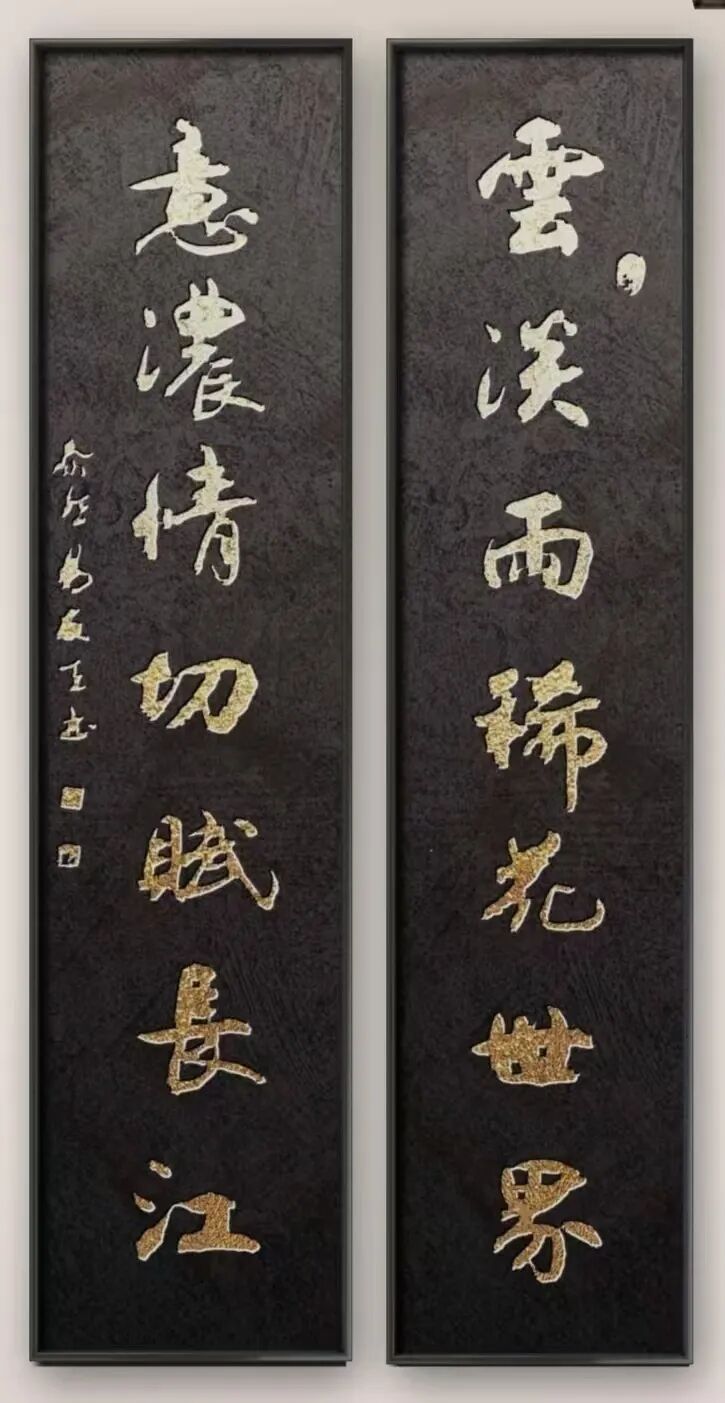 雲淡雨稀花世界
意濃情切賦長江